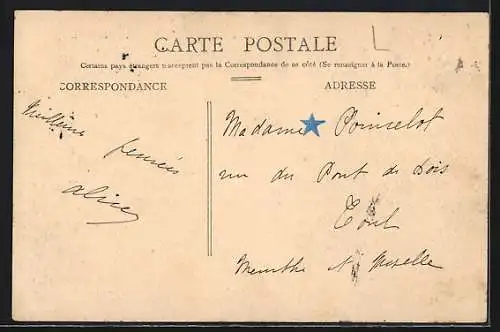 CARTE POSTALE
Certains pays étrangers n'acceptent pas la Correspondance de ce côté (Se renseigner à la Poste.)
CORRESPONDANCE
Meilleures
pensées
alice
ADRESSE
Madame Poinselot
rue du Pont de bois
Toul
Meurthe et Moselle